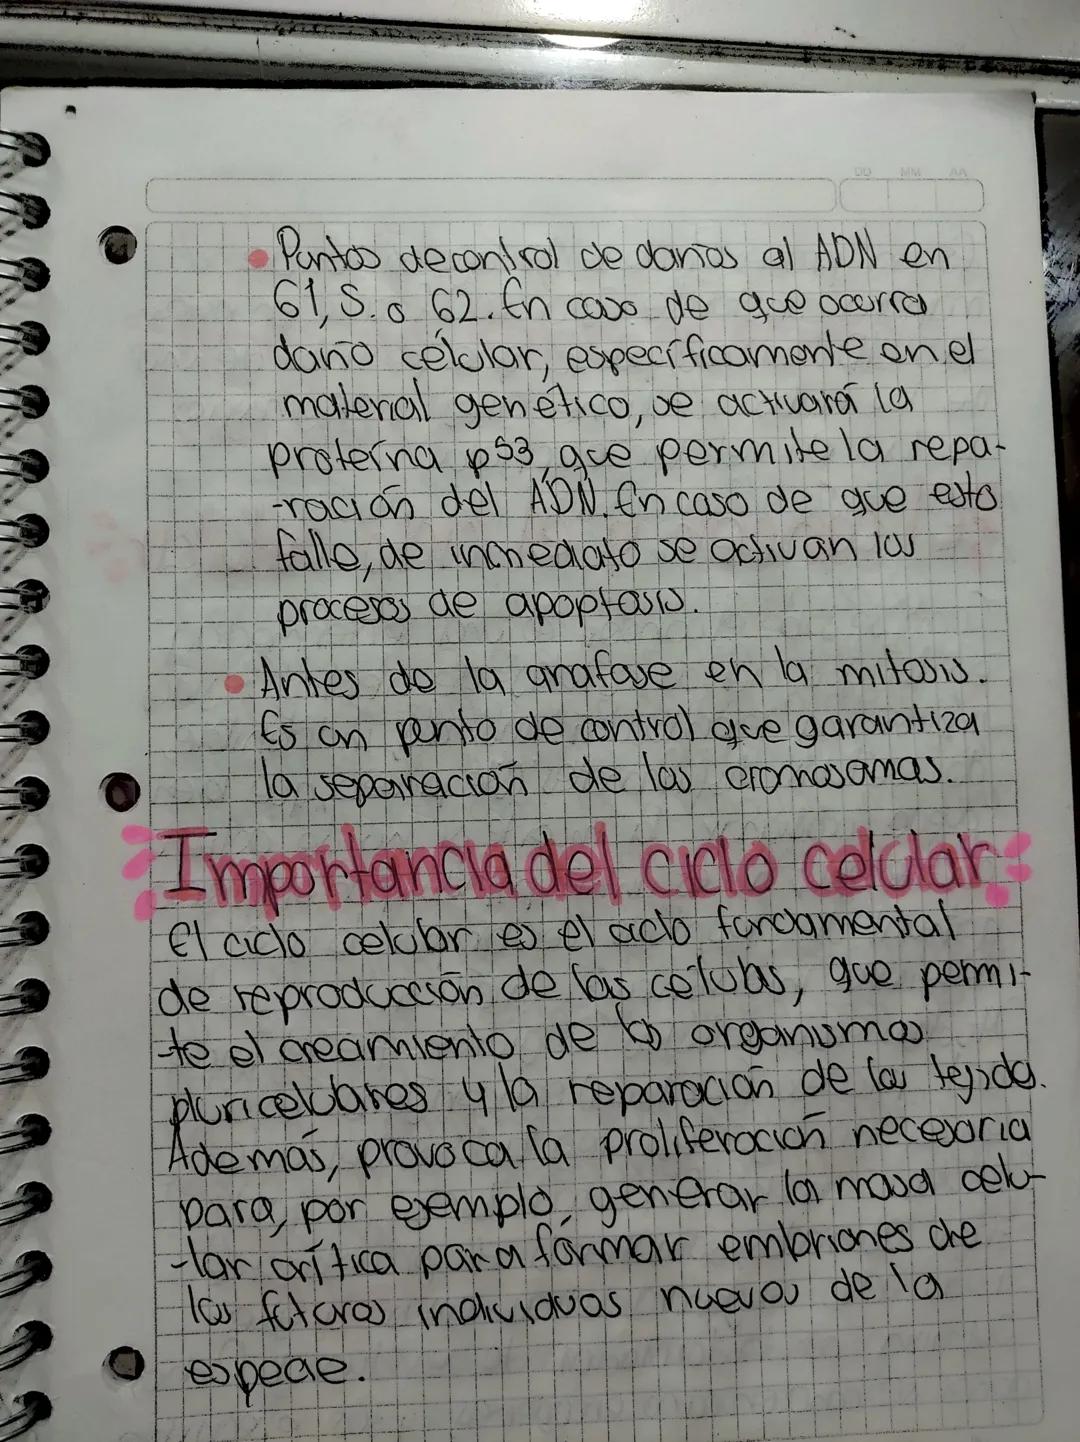 DD MM AA
• Puntos de control de daños al ADN en
G1, S. o G2. En caso de que ocurra
daño celular, específicamente en el
material genético, se activará la
proteína p53, que permite la repa-
-ración del ADN. En caso de que esto
falle, de inmediato se activan los
procesos de apoptosis.
• Antes de la anafase en la mitosis.
Es un punto de control que garantiza
la separación de los cromosomas.
Importancia del ciclo celular:
El ciclo celular es el ciclo fundamental
de reproducción de las células, que permi-
-te el creamiento de los organismos
pluricelulares y la reparación de los tejidos.
Además, provoca la proliferación necesaria
para, por ejemplo, generar la masa celu-
-lar crítica para formar embriones de
los futuros individuos nuevos de la
especie.